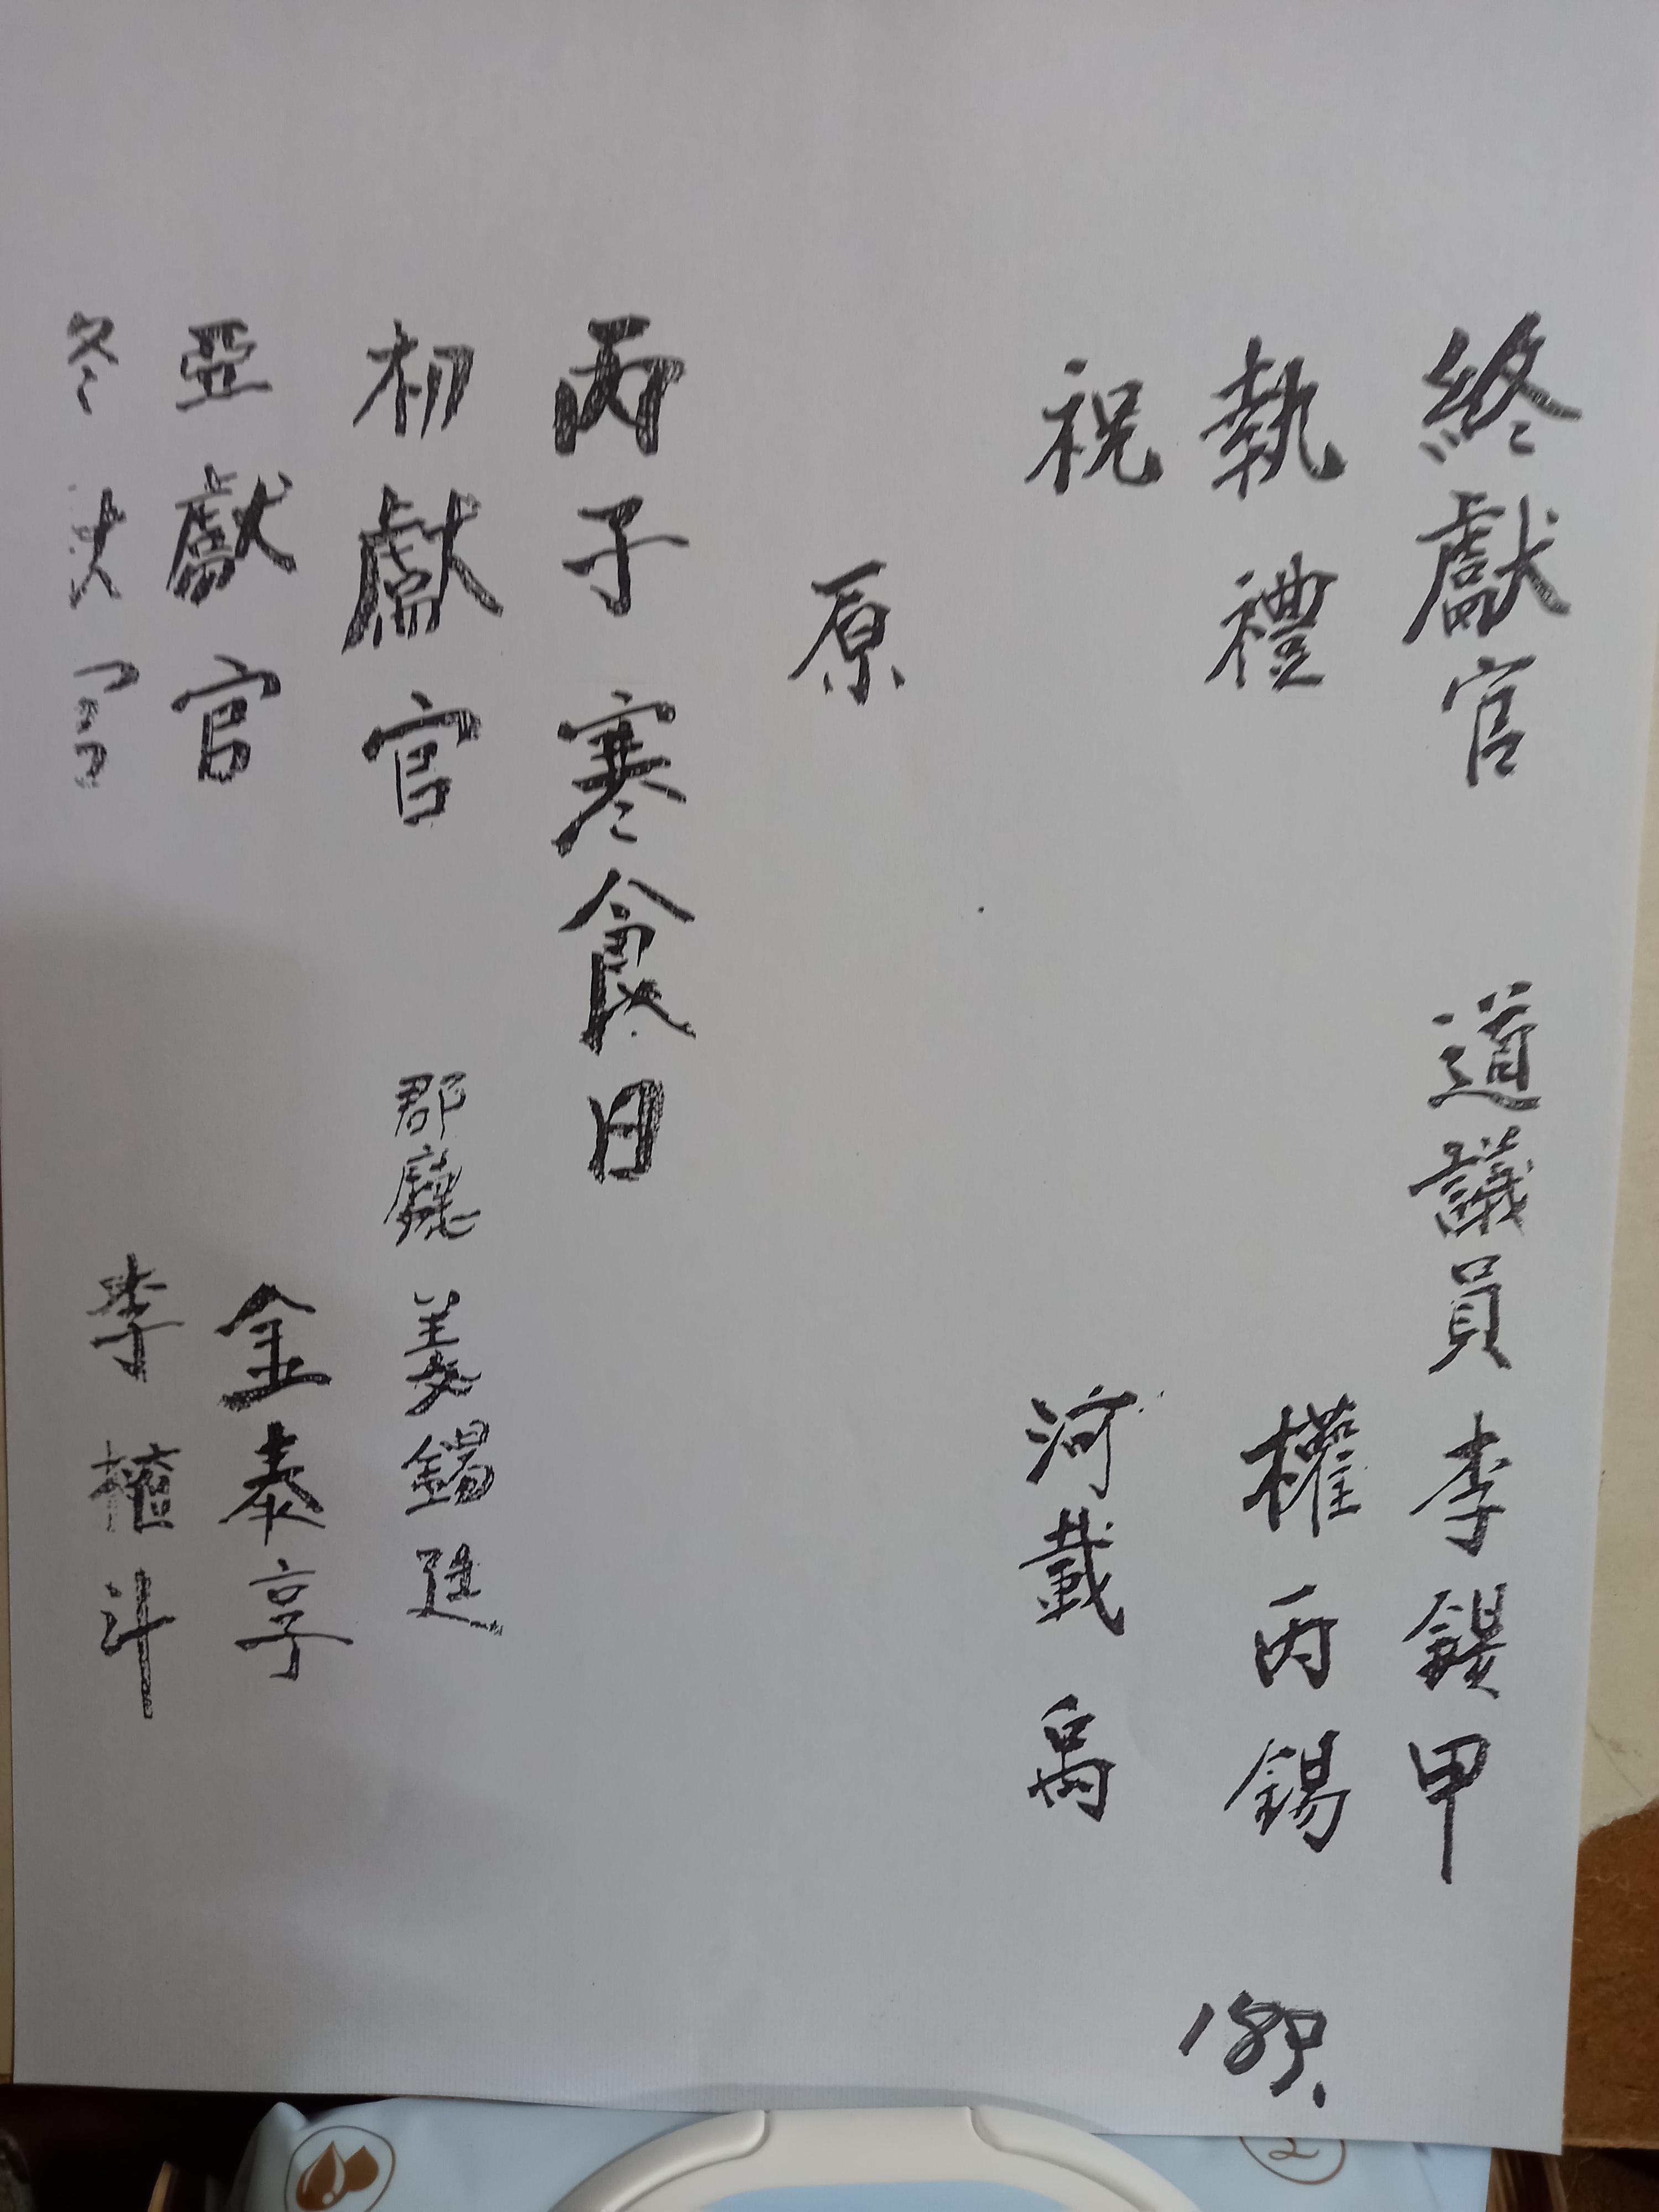 終獻官 道議員 李鍰甲
執禮 權丙錫
祝 河載禹
原
丙子寒食日
初獻官 郡廳 姜錫廷
亞獻官 金泰亨
李 斗
189.